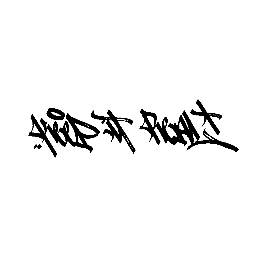 KEEP IT REAL